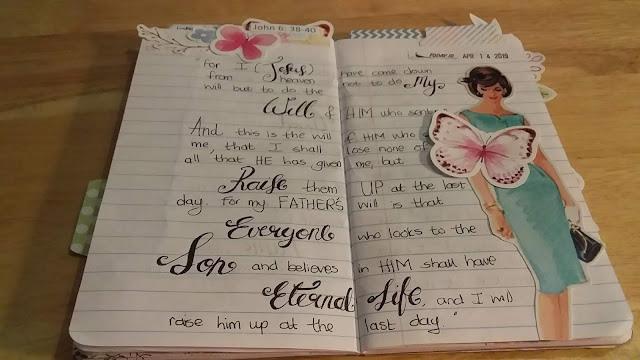 John 6: 38-40
APR 14 2019
For I (Jesus) have come down
from heaven not to do My
will but to do the
Will of HIM who sent
And this is the will of HIM who
me, that I shall lose none of
all that HE has given me, but
Raise them UP at the last
day. For my FATHER'S will is that
Everyone who looks to the
Son and believes in HIM shall have
Eternal Life, and I will
raise him up at the last day."